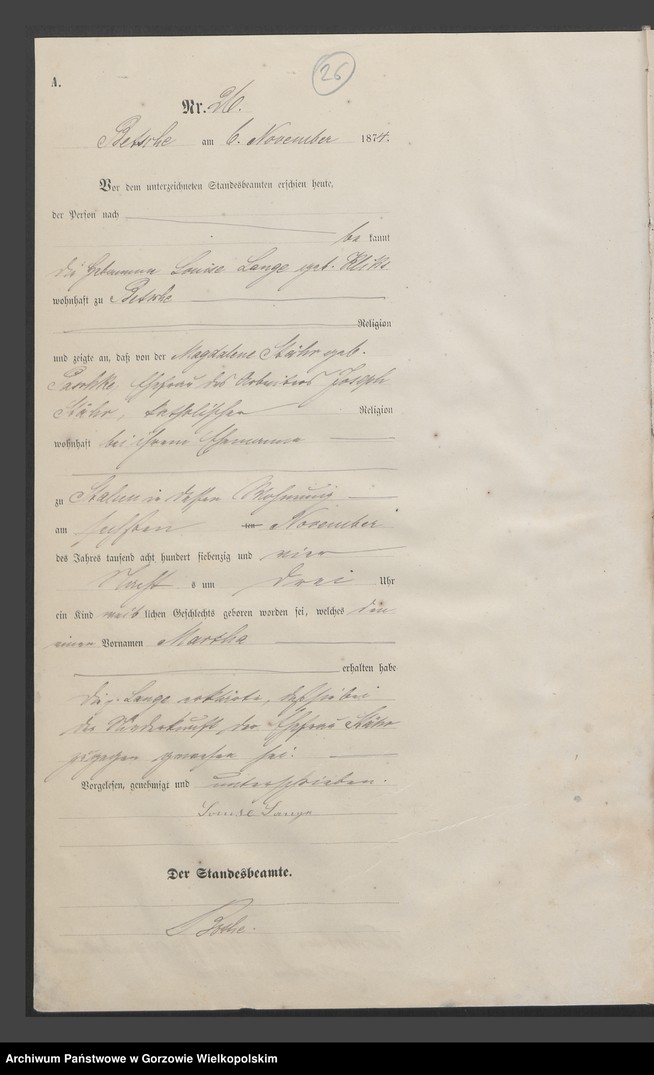 26
A.
Nr. 26.
Betsche am 6. November 1874.
Vor dem unterzeichneten Standesbeamten erschien heute,
der Person nach
be kannt
die Hebamme Louise Lange geb.
wohnhaft zu Betsche
Religion
und zeigte an, daß von der Magdalene Stähr geb.
Paschke Ehefrau des Arbeiters Joseph
Stähr, katholischer Religion
wohnhaft bei ihrem Ehemanne
zu in dessen Wohnung
am November
des Jahres tausend acht hundert siebenzig und vier
Nacht s um drei Uhr
ein Kind weib lichen Geschlechts geboren worden sei, welches den
einen Vornamen Martha
erhalten habe
Lange erklärte, daß sie bei
der Niederkunft der Ehefrau Stähr
zugegen gewesen sei.
Vorgelesen, genehmigt und unterschrieben.
Louise Lange
Der Standesbeamte.
Bothe.
Archiwum Państwowe w Gorzowie Wielkopolskim